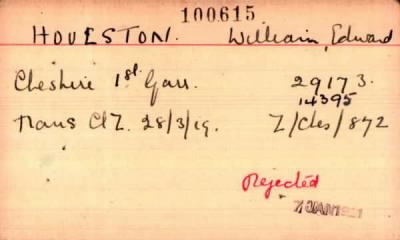 100615
HOULSTON. William, Edward
Cheshire 1st. Garr. 29173.
14395
Trans Cl Z. 28/3/19. Z/Ches/872
Rejected
7 JAN 1921